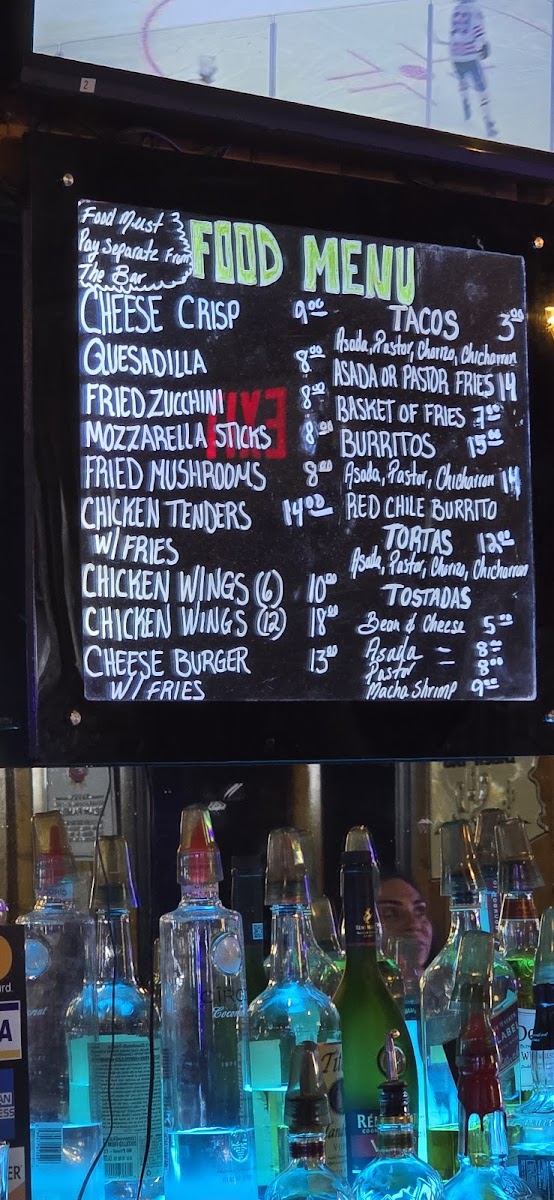 2
Food Must
Pay Separate From
The Bar
FOOD MENU
CHEESE CRISP 9.00
QUESADILLA 8.00
FRIED ZUCCHINI 8.00
EXIT
MOZZARELLA STICKS 8.00
FRIED MUSHROOMS 8.00
CHICKEN TENDERS 14.00
W/FRIES
CHICKEN WINGS (6) 10.00
CHICKEN WINGS (12) 18.00
CHEESE BURGER 13.00
W/ FRIES
TACOS 3.00
Asada, Pastor, Chorizo, Chicharron
ASADA OR PASTOR FRIES 14
BASKET OF FRIES 7.00
BURRITOS 15.00
Asada, Pastor, Chicharron 14
RED CHILE BURRITO
TORTAS 12.00
Asada, Pastor, Chorizo, Chicharron
TOSTADAS
Bean & Cheese 5.00
Asada - 8.00
Pastor 8.00
Macha Shrimp 9.00
CÎROC
Coconut
Tito's
RÉMY
V
LABEL